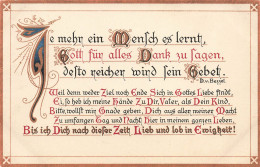 Je mehr ein Mensch es lernt,
Gott für alles Dank zu sagen,
desto reicher wird sein Gebet.
Weil denn weder Ziel noch Ende Sich in Gottes Liebe find't,
Ei, so heb ich meine Hände Zu Dir, Vater, als Dein Kind,
Bitte, wollst mir Gnade geben, Dich aus aller meiner Macht
Zu umfangen Tag und Nacht Hier in meinem ganzen Leben,
Bis ich Dich nach dieser Zeit Lieb und lob in Ewigkeit!